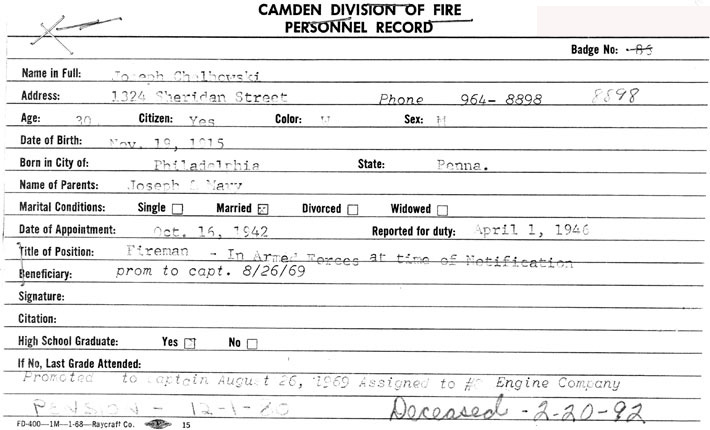 CAMDEN DIVISION OF FIRE
PERSONNEL RECORD
Badge No: 85
Name in Full: Joseph Chelhowski
Address: 1324 Sheridan Street Phone 964- 8898 8898
Age: 30 Citizen: Yes Color: W Sex: M
Date of Birth: Nov. 19, 1915
Born in City of: Philadelphia State: Penna.
Name of Parents: Joseph & Mary
Marital Conditions: Single Married Divorced Widowed
Date of Appointment: Oct. 16, 1942 Reported for duty: April 1, 1946
Title of Position: Fireman - In Armed Forces at time of Notification
Beneficiary: prom to capt. 8/26/69
Signature:
Citation:
High School Graduate: Yes No
If No, Last Grade Attended:
Promoted to Captain August 26, 1969 Assigned to Engine Company
PENSION - 12-1-80 Deceased - 2-20-92
FD-400—1M—1-68—Raycraft Co. 15